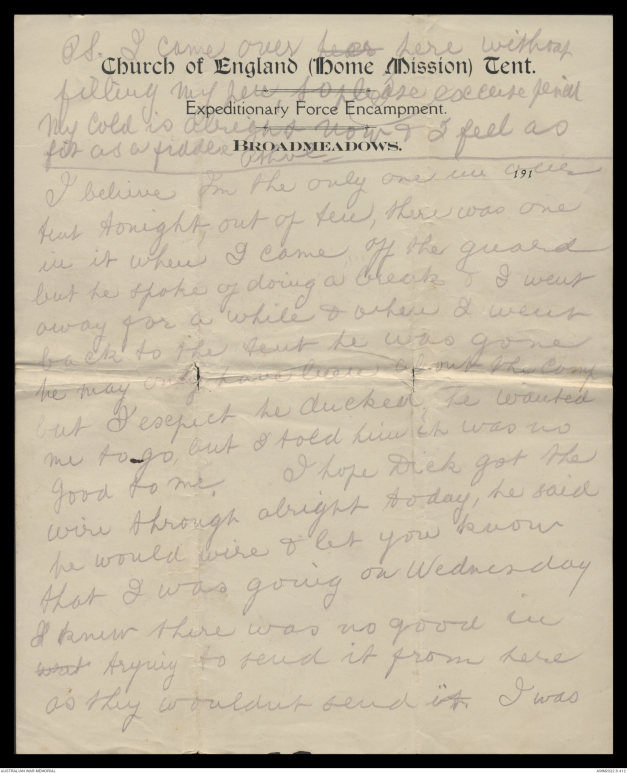 P.S. I came over ~~hear~~ here without
Church of England (Home Mission) Tent.
filling my pen so please excuse pencil
Expeditionary Force Encampment.
My cold is alright now & I feel as
fit as a fiddle
BROADMEADOWS.
191
I believe I'm the only one in
tent tonight, out of ten, there was one
in it when I came off the guard
but he spoke of doing a break & I went
away for a while & when I went
back to the tent he was gone
he may only have been about the camp
but I expect he ducked he wanted
me to go, but I told him it was no
good to me. I hope Dick got the
wire through alright today, he said
he would wire & let you know
that I was going on Wednesday
I knew there was no good in
~~wat~~ trying to send it from here
as they wouldnt send it. I was
AUSTRALIAN WAR MEMORIAL